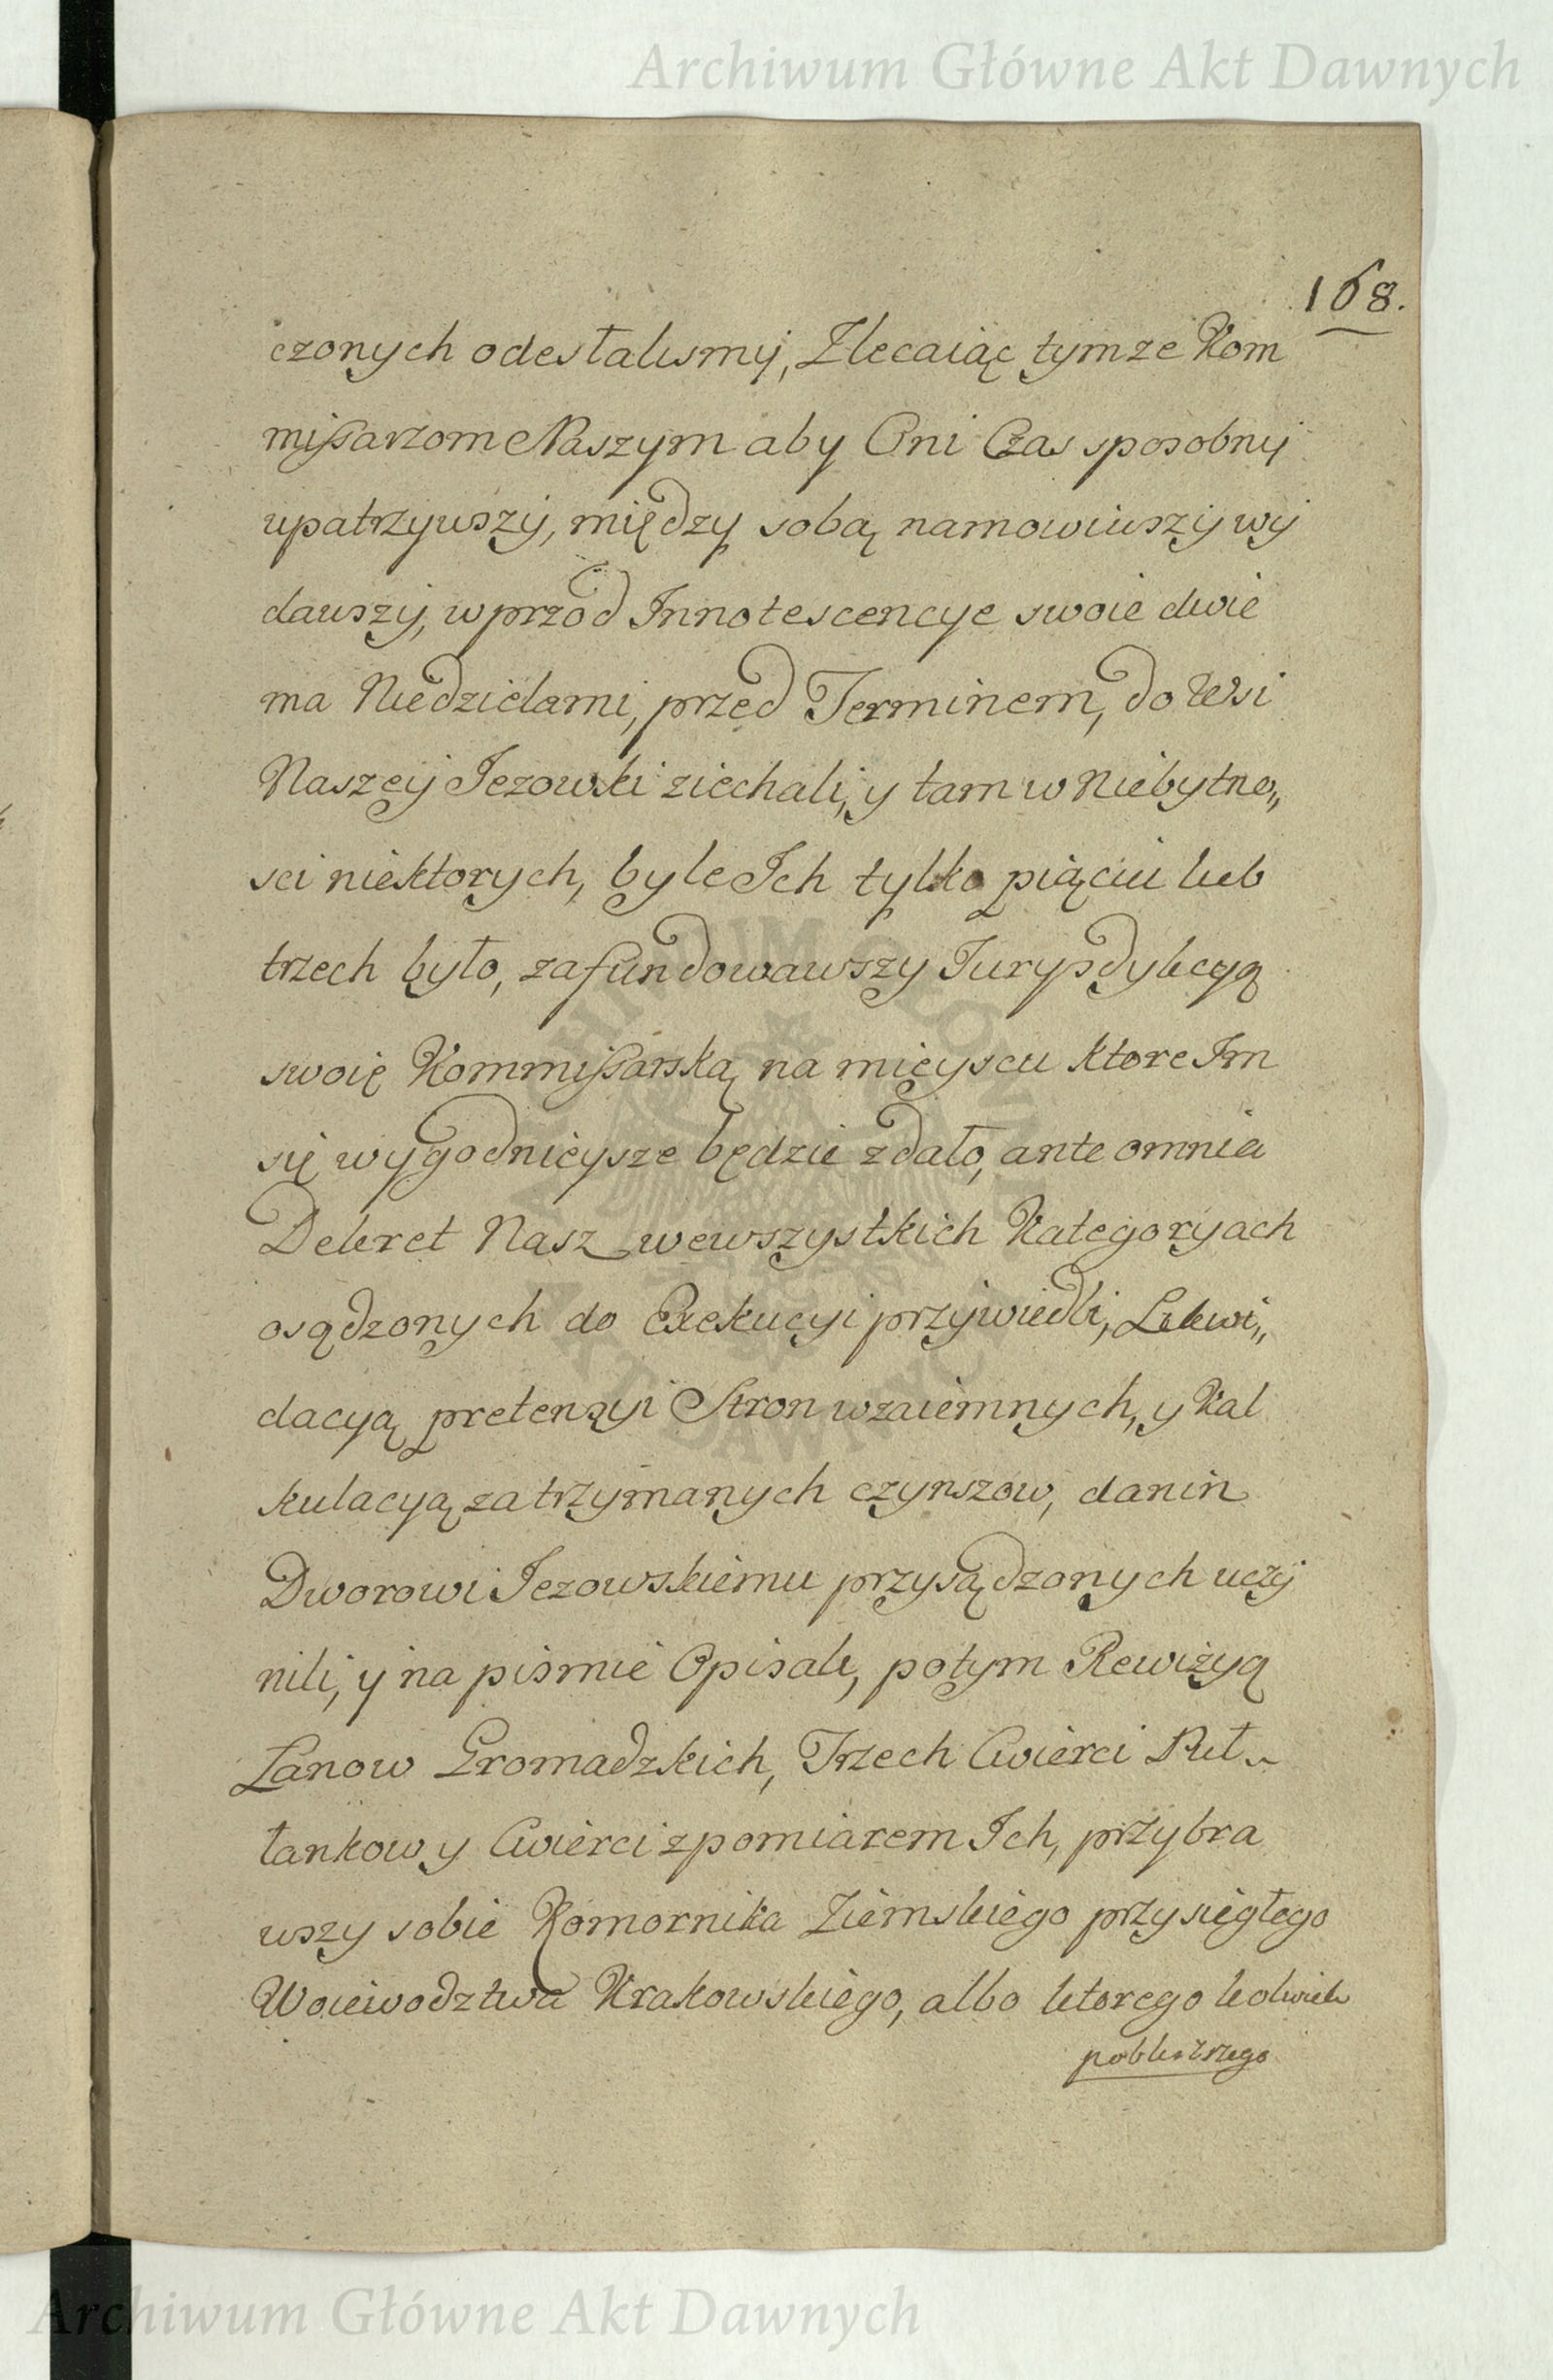 Archiwum Główne Akt Dawnych
168.
czonych odesłalismy, Zlecaiąc tymze Kom
missarzom Naszym aby Oni Czas sposobny
upatrzywszy, między sobą namowiwszy wy
dawszy, wprzod Innotescencye swoie dwie
ma Niedzielami, przed Terminem, do Wsi
Naszey Jezowski ziechali, y tam w Niebytno„
sci niektorych, byle Ich tylko piąciu lub
trzech było, zafundowawszy Jurysdykcyą
swoię Kommissarską na mieyscu ktore Im
się wygodnieysze będzie zdało, ante omnia
Dekret Nasz wewszystkich Kategoryach
osądzonych do Exekucyi przywiedli, Likwi„
dacyą pretensyi Stron wzaiemnych, y Kal
kulacyą zatrzymanych czynszow, danin
Dworowi Jezowskiemu przysądzonych uczy
nili, y na pismie Opisali, potym Rewizyą
Łanow Gromadzkich, Trzech Cwierci Puł
łankow y Cwierci z pomiarem Ich, przybra
wszy sobie Komornika Ziemskiego przysięgłego
Woiewodztwa Krakowskiego, albo ktorego kolwiek
poblizszego
Archiwum Główne Akt Dawnych